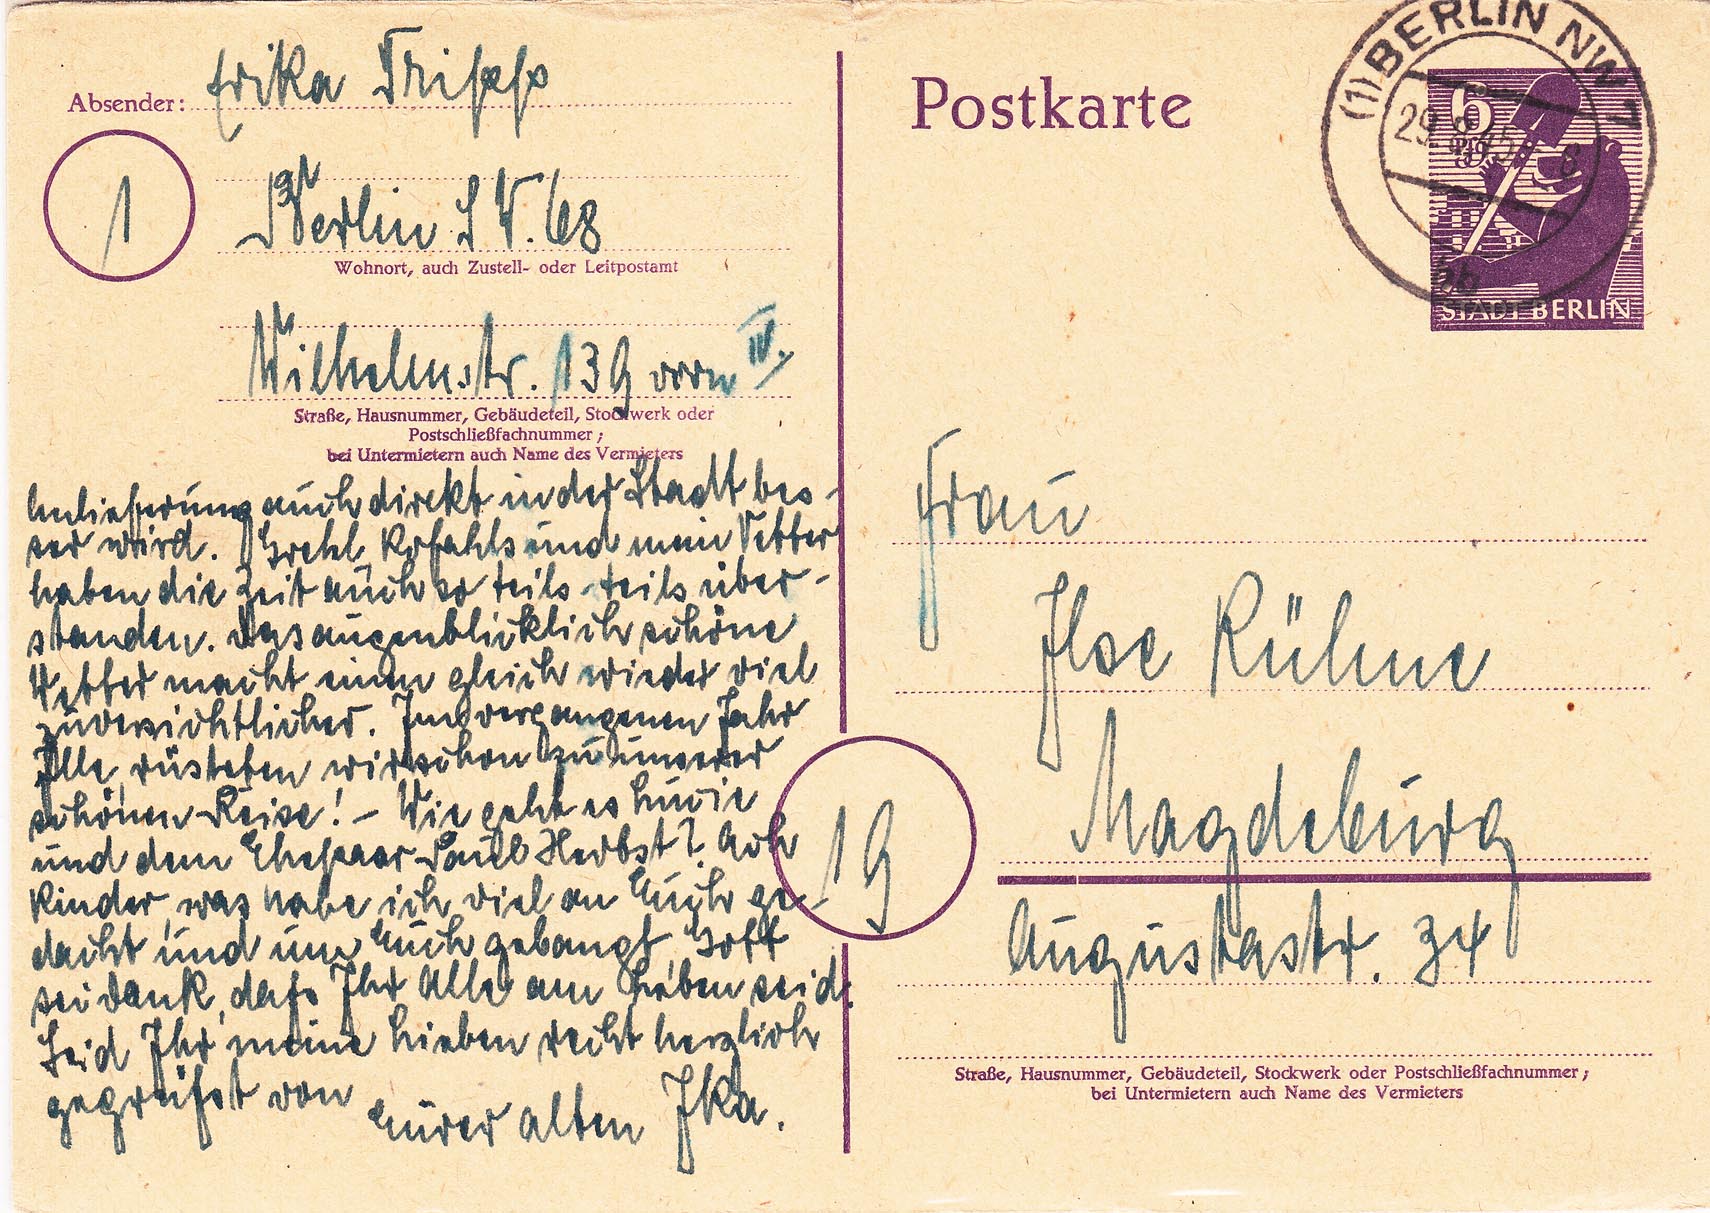 Absender: Erika Tripp
1
Berlin SW. 68
Wohnort, auch Zustell- oder Leitpostamt
Wilhelmstr. 139 vorn IV.
Straße, Hausnummer, Gebäudeteil, Stockwerk oder
Postschließfachnummer;
bei Untermietern auch Name des Vermieters
Anlieferung auch direkt in der Stadt bes-
ser wird. Gretel, Kofahls und mein Vetter
haben die Zeit auch so teils-teils über-
standen. Das augenblicklich schöne
Wetter macht einen gleich wieder viel
zuversichtlicher. Im vergangenen Jahr
Alle, rüsteten wir schon zu unserer
schönen Reise! – Wie geht es
und dem Ehepaar Paul Herbst? Ach
Kinder, was habe ich viel an Euch ge-
dacht und um Euch gebangt, Gott
sei dank, dafs Ihr Alle am Leben seid.
Seid Ihr meine Lieben recht herzlich
gegrüfst von
Eurer alten Ika.
Postkarte
(1) BERLIN NW 7
29.8.45. 8
bb
6
STADT BERLIN
Frau
Ilse Kühne
19
Magdeburg
Augustastr. 34
Straße, Hausnummer, Gebäudeteil, Stockwerk oder Postschließfachnummer;
bei Untermietern auch Name des Vermieters